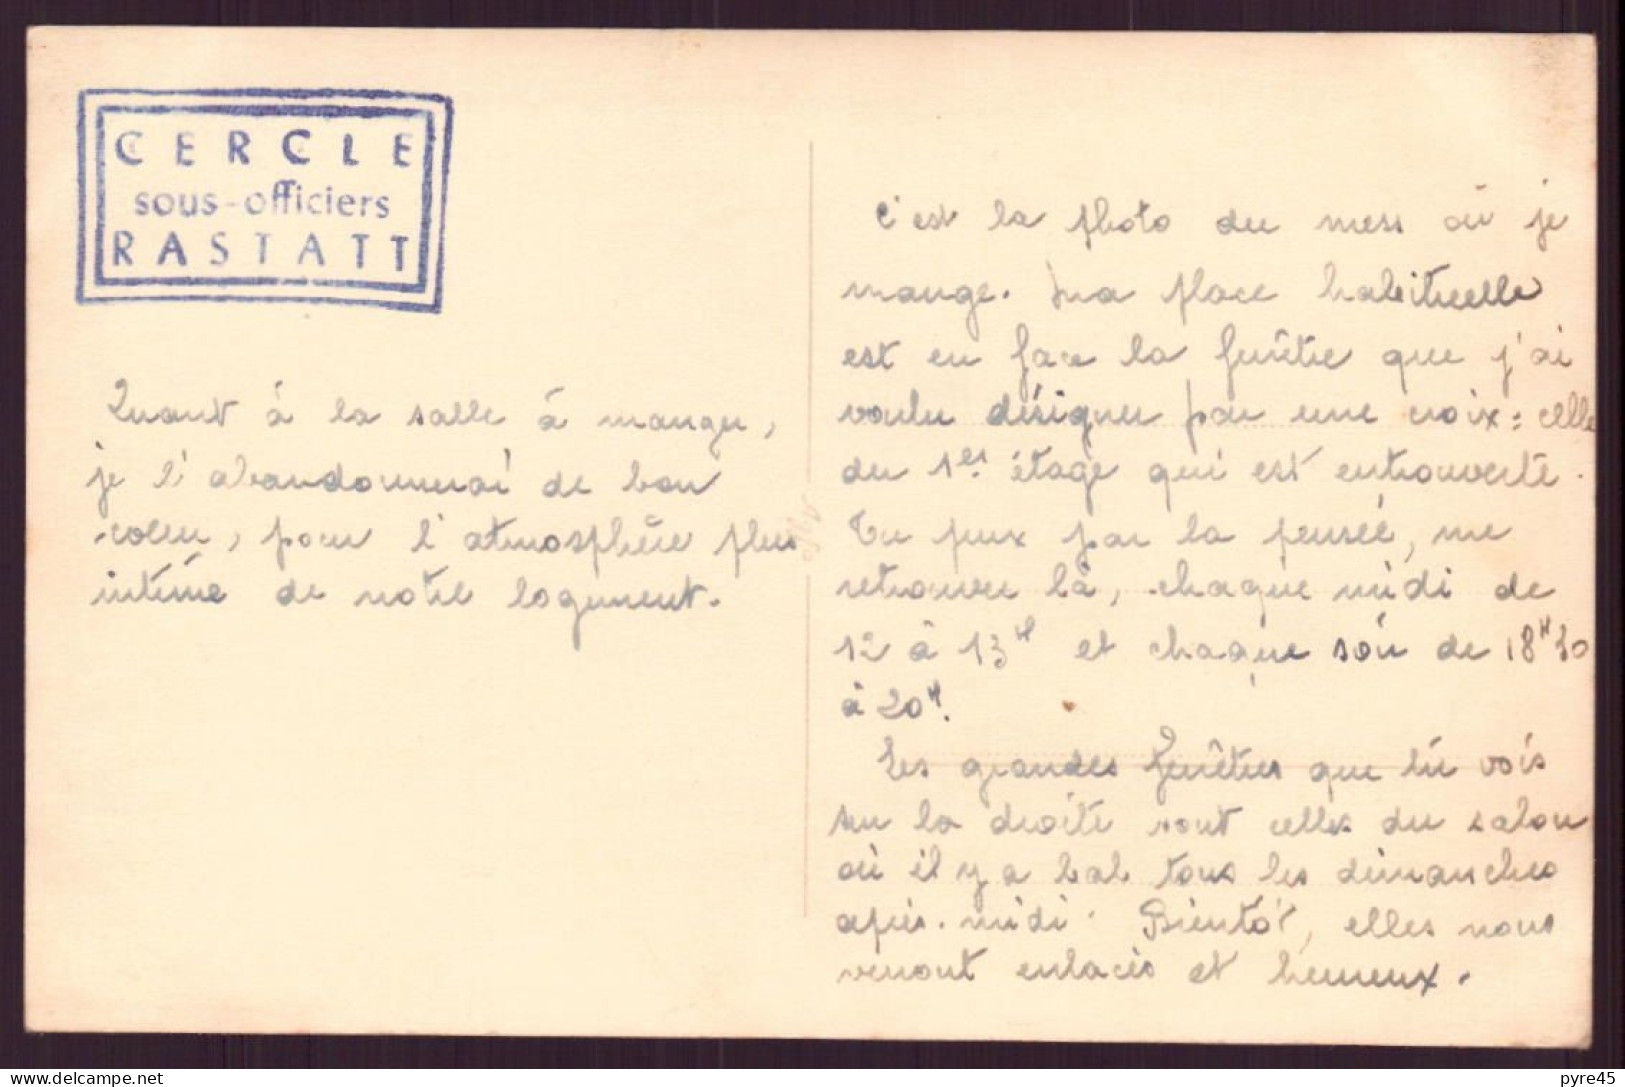 CERCLE
sous-officiers
RASTATT
Quant à la salle à manger,
je l'abandonnerai de bon
cœur, pour l'atmosphère plus
intime de notre logement.
C'est la photo du mess où je
mange. Ma place habituelle
est en face la fenêtre que j'ai
voulu désigner par une croix : celle
du 1er étage qui est entrouverte.
Tu peux par la pensée, me
retrouver là, chaque midi de
12 à 13H et chaque soir de 18H30
à 20H.
Les grandes fenêtres que tu vois
sur la droite sont celles du salon
où il y a bal tous les dimanches
après-midi. Bientôt, elles nous
verront enlacés et heureux.
pyre45